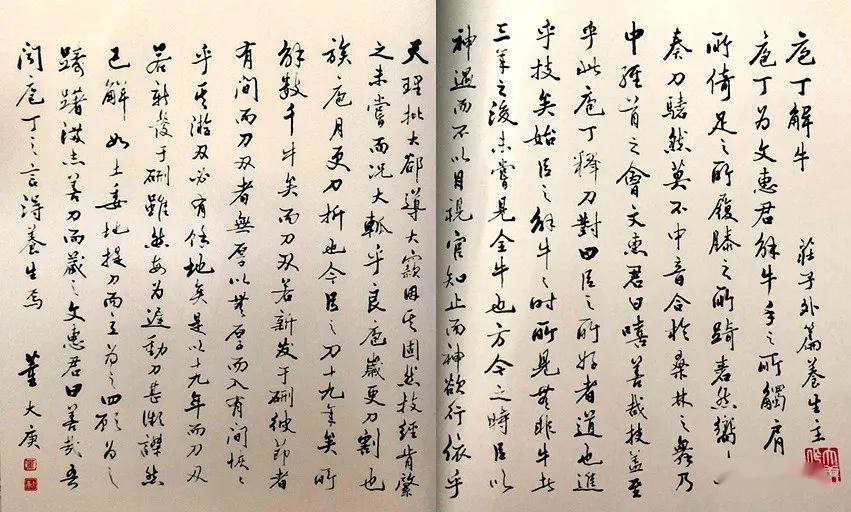 庖丁解牛 莊子外篇養生主
庖丁為文惠君解牛手之所觸肩
所倚足之所履膝之所踦砉然嚮
奏刀騞然莫不中音合於桑林之舞乃
中經首之會文惠君曰嘻善哉技蓋至
乎此庖丁釋刀對曰臣之所好者道也進
乎技矣始臣之解牛之時所見無非牛者
三年之後未嘗見全牛也方今之時臣以
神遇而不以目視官知止而神欲行依乎
天理批大郤導大窾因其固然技經肯綮
之未嘗而況大軱乎良庖歲更刀割也
族庖月更刀折也今臣之刀十九年矣所
解數千牛矣而刀刃若新发于硎彼節者
有間而刀刃者無厚以無厚而入有間恢々
乎其游刃必有餘地矣是以十九年而刀刃
若新發于硎雖然每為遲動刀甚微謋然
已解如土委地提刀而立為之四顧為之
躊躇滿志善刀而藏之文惠君曰善哉吾
聞庖丁之言得養生焉 董大庚